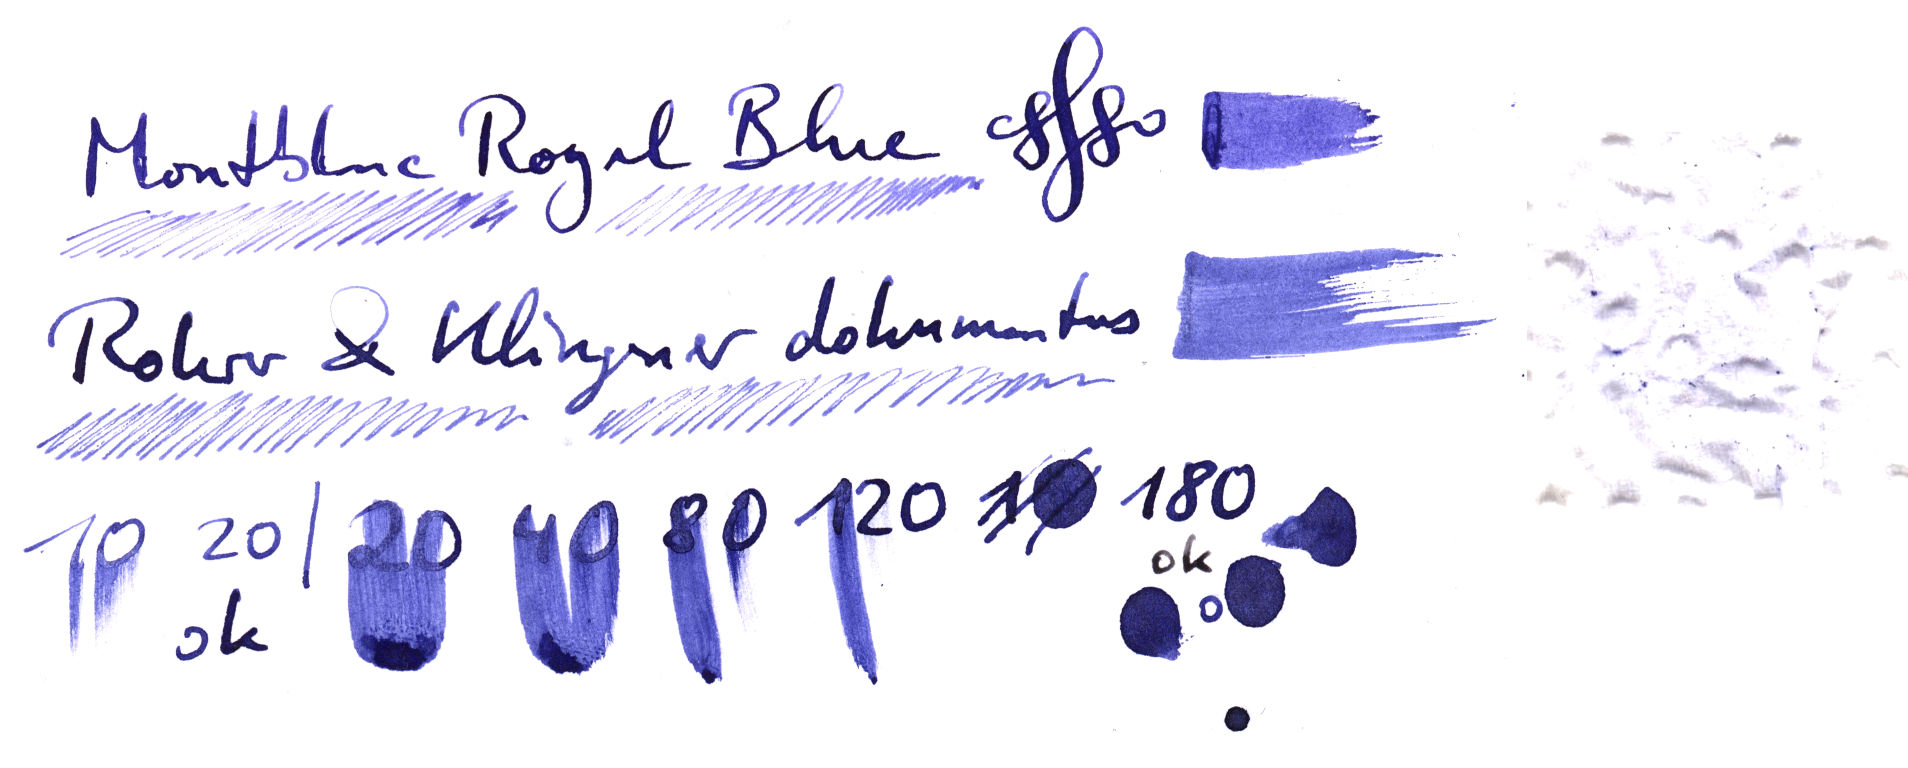 Montblanc Royal Blue
Rohrer & Klingner dokumentus
10 20 / 20 40 80 120 180
ok ok